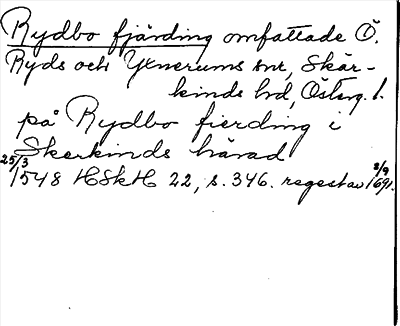 Rydbo fjärding omfattade Ö.
Ryds och Yxnerums snr, Skär-
kinds hd, Österg. l.
på Rydbo fierding i
Skerkinds härad
25/3 1548 HSkH 22, s. 346. regest av 8/9 1691.